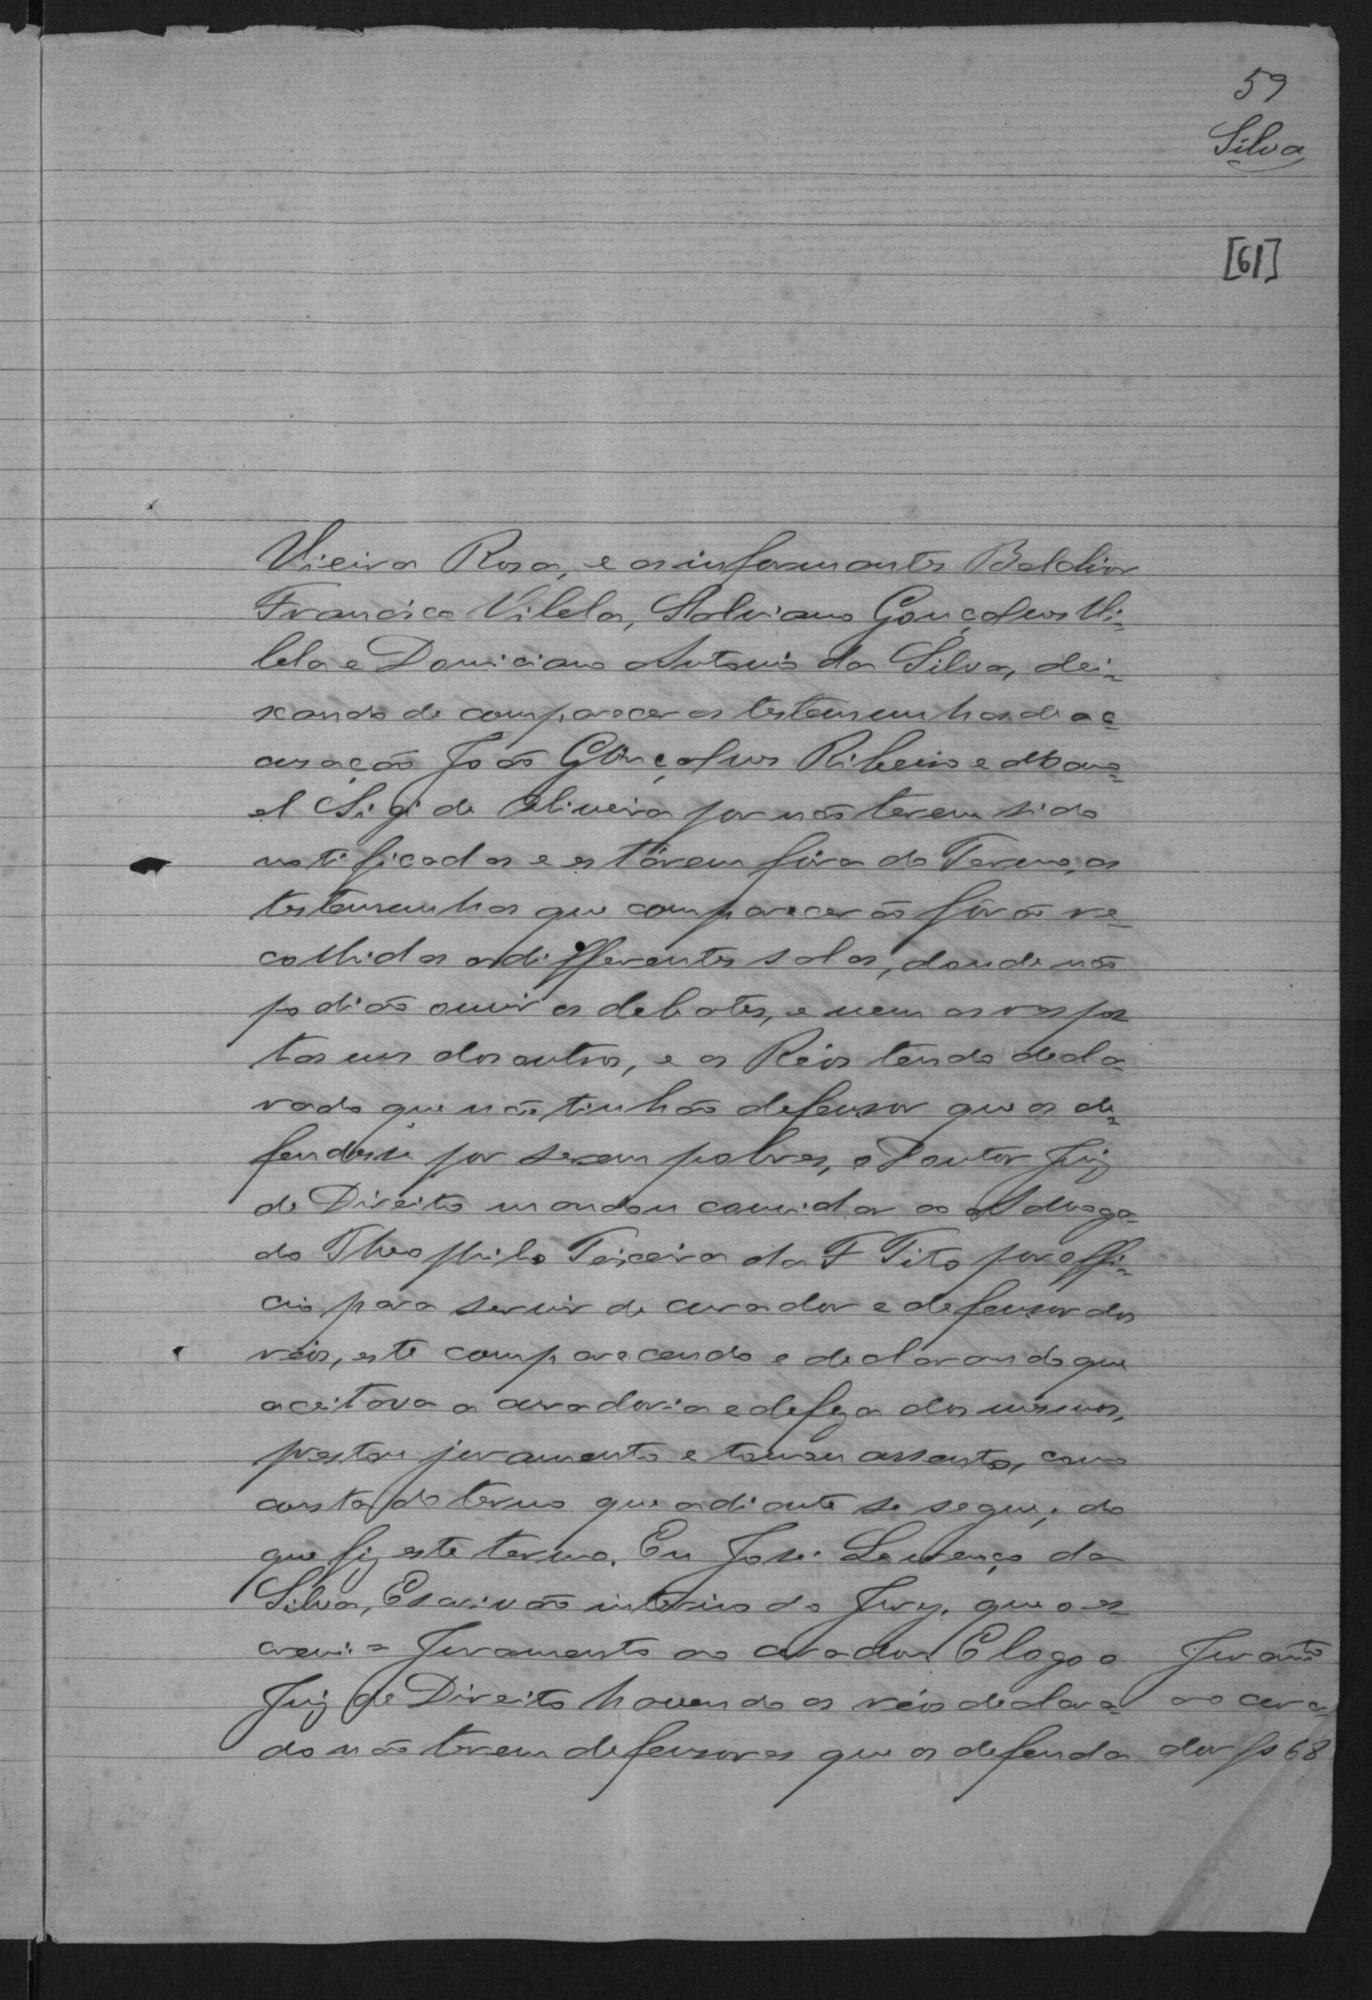 59
Silva
[61]
Vieira Rosa, e os informantes Balduior
Francisco Vilela, Salviano Gonçalves Vi-
lela e Domiciano Antonio da Silva, dei-
xando de comparecer as testemunhas de ac
cusação João Gonçalves Ribeiro e Mano-
el de Oliveira por não terem sido
notificados e estárem fóra do Termo, as
testemunhas que comparecerão fôrão re-
colhidas a differentes salas, donde não
podião ouvir os debates, e nem as respos
tas uns dos outros, e os Réos tendo decla-
rado que não tinhão defensor que os de-
fendesse por serem pobres, o Doutor Juiz
de Direito mandou convidar ao Advoga-
do Theophilo Teixeira da F Tito por offi-
cio para servir de curador e defensor dos
réos, este comparecendo e declarando que
aceitava a curadoria e defeza dos mesmos,
prestou juramento e tomou assento, como
consta do termo que adiante se segue; do
que fiz este termo. Eu José Lourenço da
Silva, Escrivão interino do Jury, que o es
crevi = Juramento ao curador. E logo o
Juiz de Direito havendo os réos declara-
do não terem defensores que os defenda
Juramto
ao cura-
dor fs 68